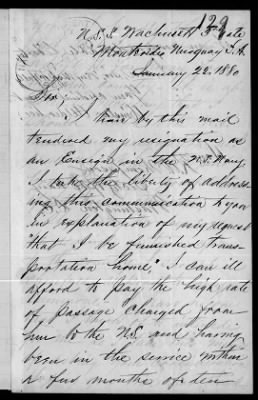 129
U.S.S. Wachusett 3d rate
Montevideo Uruguay S.A.
January 22. 1880
Sir;
I have by this mail
tendered my resignation
as an Ensign in the U.S. Navy.
I take the liberty of address-
ing this communication to you
in explanation of my request
"that I be furnished trans-
portation home." I can ill
afford to pay the high rate
of passage charged from
here to the U.S. and having
been in the service within
a few months of ten